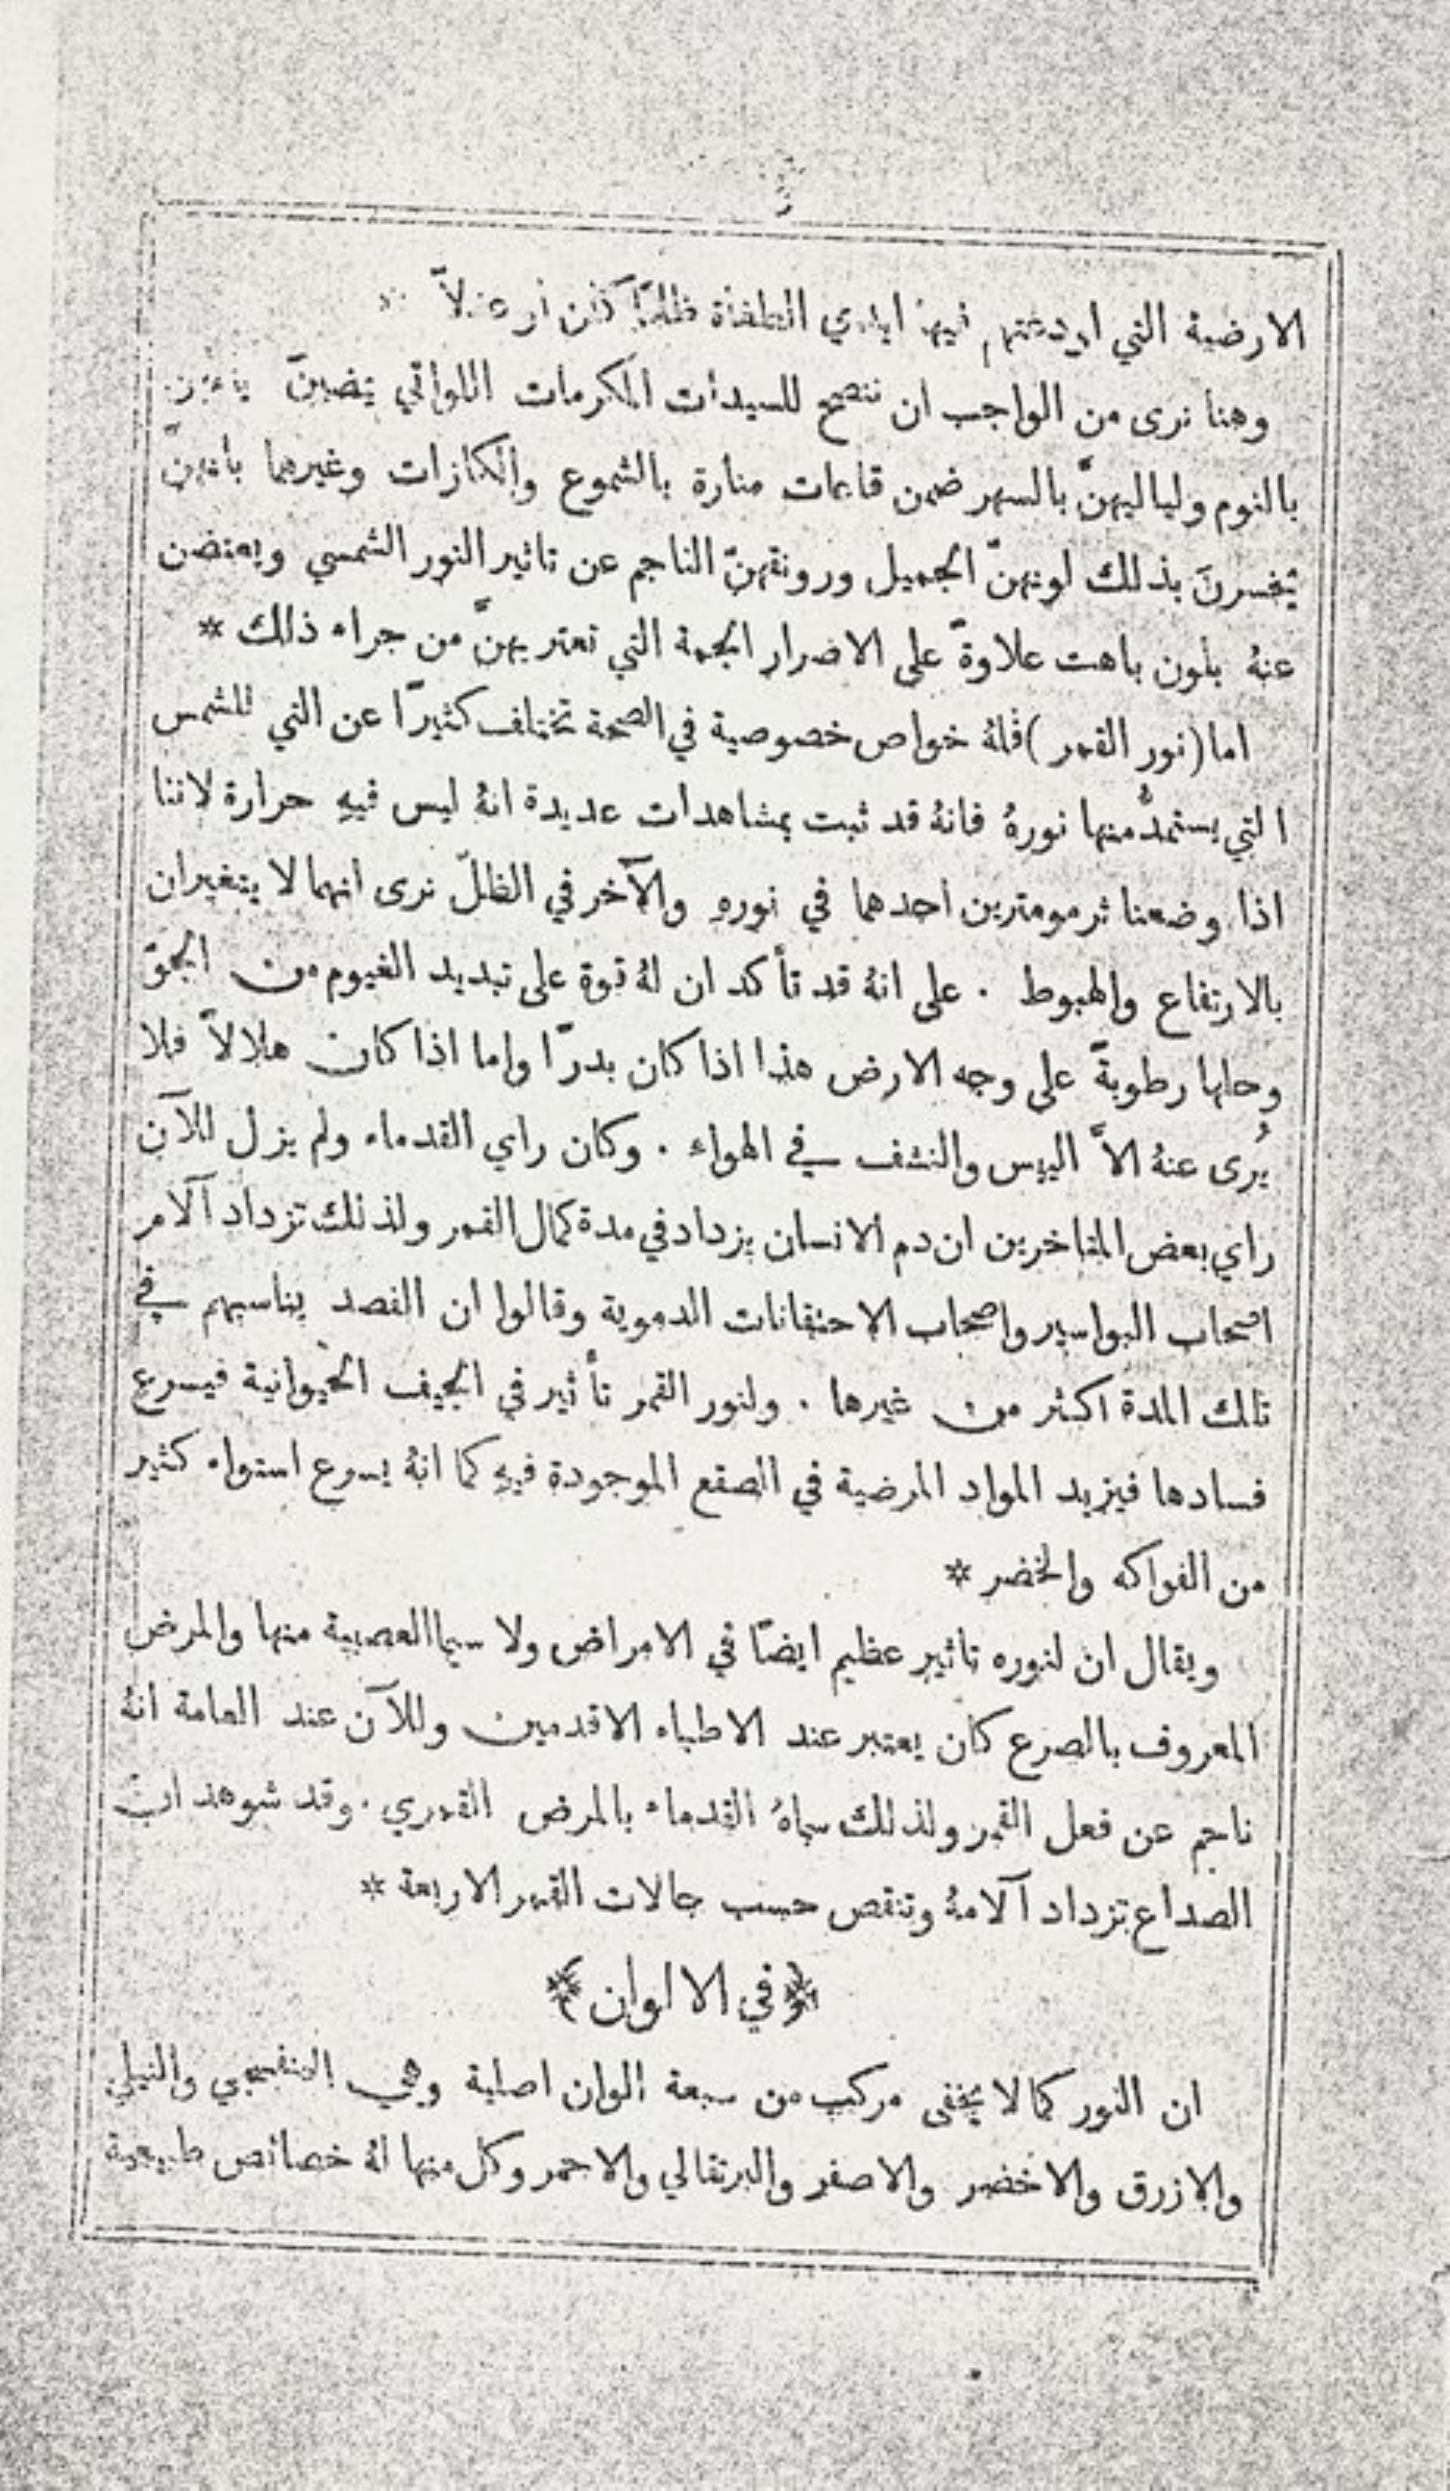 الارضية التي اودعتهم فيها ايدي السلطة ظلمًا كان او عدلاً
وهنا نرى من الواجب ان ننصح للسيدات المكرمات اللواتي يقضينَ
بالنوم ولياليهنَّ بالسهر ضمن قاعات منارة بالشموع والكازات وغيرهما بانهنَّ
يخسرنَ بذلك لونهنَّ الجميل ورونقهنَّ الناجم عن تاثير النور الشمسي ويعتضن
عنهُ بلون باهت علاوةً على الاضرار الجمة التي تعتريهنَّ من جراء ذلك *
اما (نور القمر) فلهُ خواص خصوصية في الصحة تختلف كثيرًا عن التي للشمس
التي يستمدُّ منها نورهُ فانهُ قد ثبت بمشاهدات عديدة انهُ ليس فيهِ حرارة لاننا
اذا وضعنا ثرمومترين احدهما في نورهِ والآخر في الظلّ نرى انهما لا يتغيران
بالارتفاع والهبوط . على انهُ قد تأكد ان لهُ قوة على تبديد الغيوم من الجوّ
وحلها رطوبةً على وجه الارض هذا اذا كان بدرًا واما اذا كان هلالاً فلا
يُرى عنهُ الاَّ اليبس والنشف في الهواء . وكان راي القدماء ولم يزل للآن
راي بعض المتاخرين ان دم الانسان يزداد في مدة كمال القمر ولذلك تزداد آلام
اصحاب البواسير واصحاب الاحتقانات الدموية وقالوا ان الفصد يناسبهم في
تلك المدة اكثر من غيرها . ولنور القمر تأثير في الجيف الحيوانية فيسرع
فسادها فيزيد المواد المرضية في الصقع الموجودة فيهِ كما انهُ يسرع استواء كثير
من الفواكه والخضر *
ويقال ان لنوره تاثير عظيم ايضًا في الامراض ولا سيما العصبية منها والمرض
المعروف بالصرع كان يعتبر عند الاطباء الاقدمين وللآن عند العامة انهُ
ناجم عن فعل القمر ولذلك سماهُ القدماء بالمرض القمري . وقد شوهد ان
الصداع تزداد آلامهُ وتنقص حسب حالات القمر الاربعة *
﴿في الالوان﴾
ان النور كما لا يخفى مركب من سبعة الوان اصلية وهي البنفسجي والنيلي
والازرق والاخضر والاصفر والبرتقالي والاحمر وكل منها لهُ خصائص طبيعية